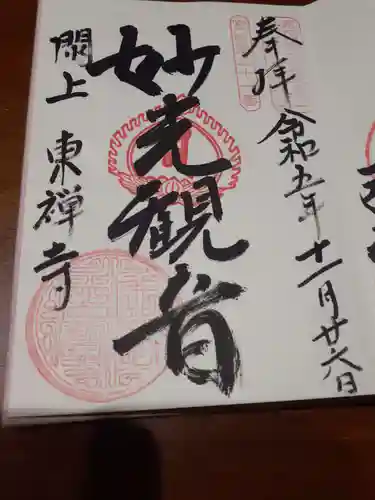 奉拝
令和五年十一月廿六日
妙光観音
閖上 東禅寺